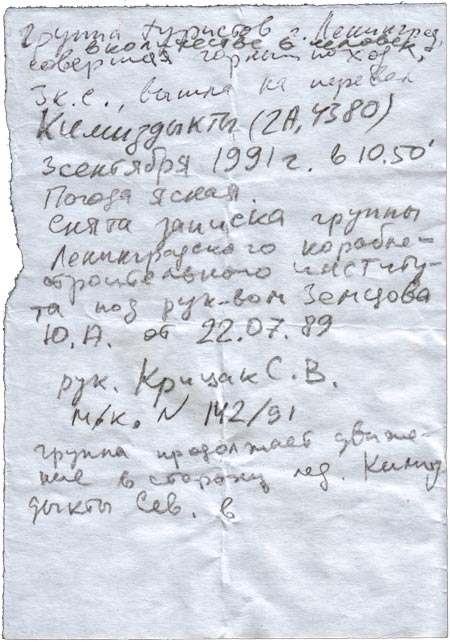 группа туристов г. Ленинград,
в количестве 6 человек,
совершая горный поход,
3 к.с., вышла на перевал
Кимиздыкты (2А, 4380)
3 сентября 1991 г. в 10.50'
Погода ясная.
Снята записка группы
Ленинградского корабле-
строительного институ-
та под рук-вом Земцова
Ю.А. от 22.07.89
рук. Крицак С.В.
м/к. N 142/91
группа продолжает движе-
ние в сторону лед. Кимиз
дыкты Сев. в